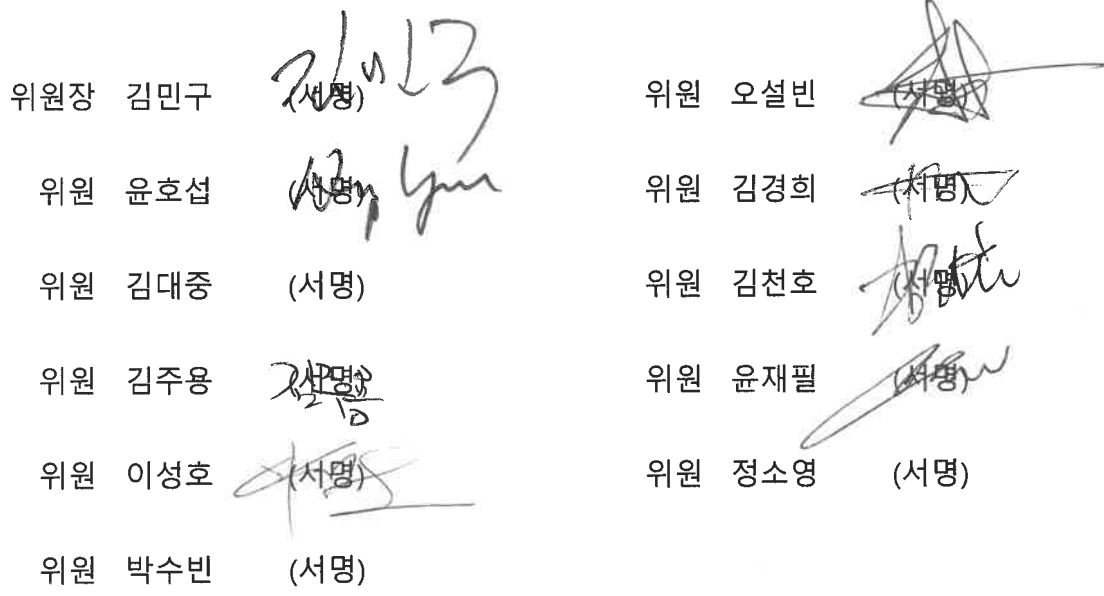 위원장 김민구 (서명)
위원 윤호섭 (서명)
위원 김대중 (서명)
위원 김주용 (서명)
위원 이성호 (서명)
위원 박수빈 (서명)
위원 오설빈 (서명)
위원 김경희 (서명)
위원 김천호 (서명)
위원 윤재필 (서명)
위원 정소영 (서명)